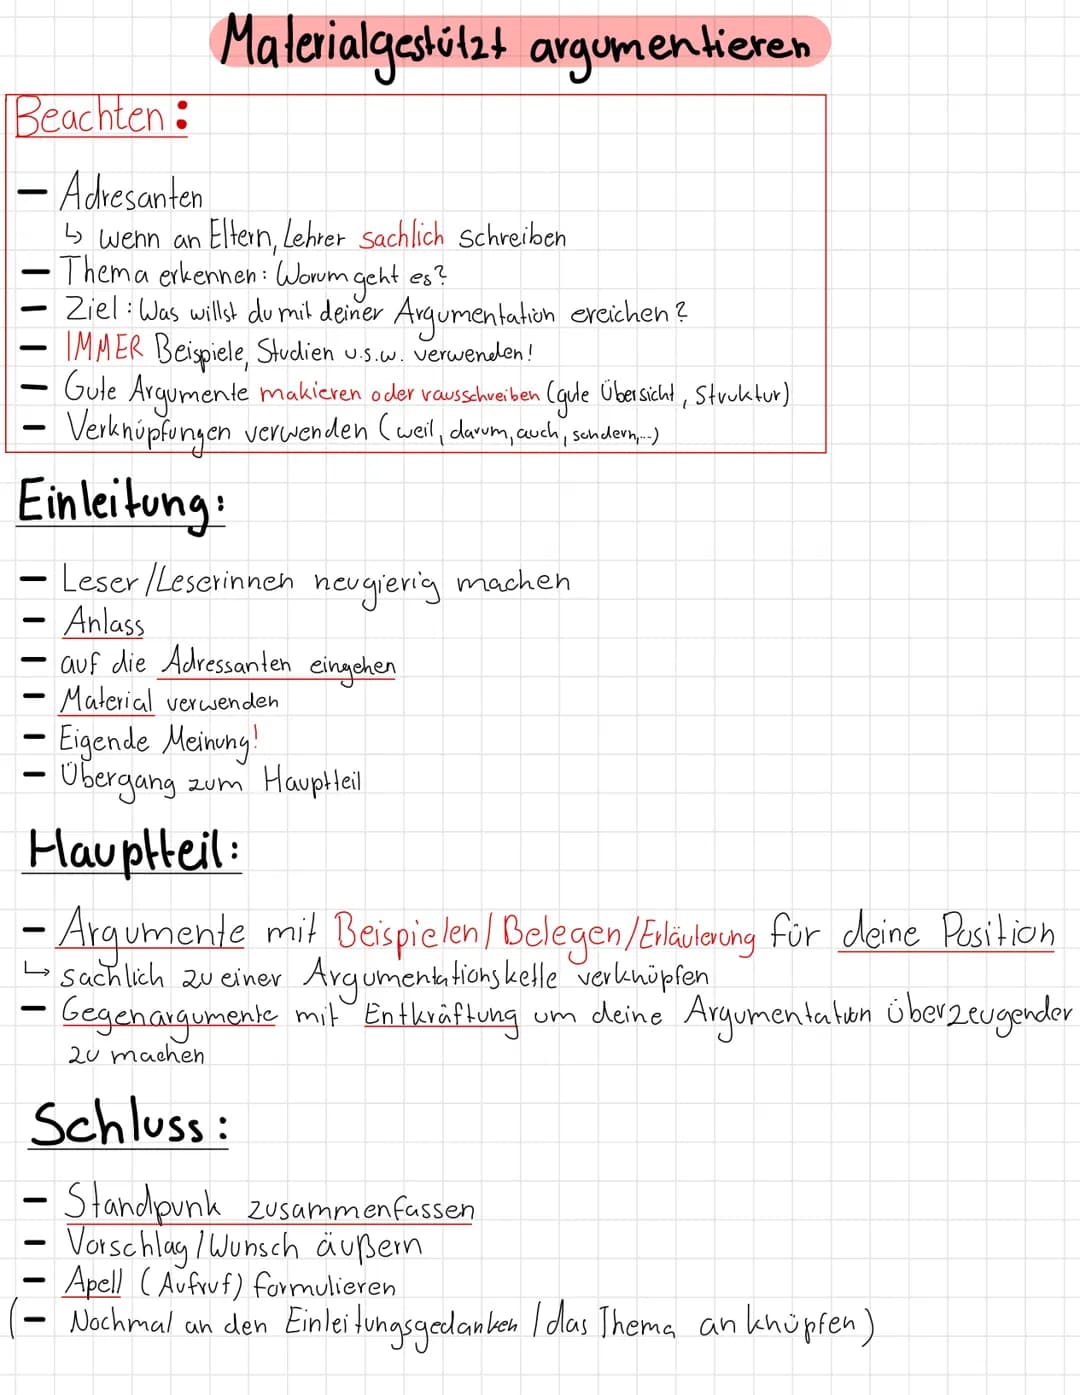 Materialgestützt argumentieren
Beachten:
- Adresanten
↳ wenn an Eltern, Lehrer sachlich schreiben
- Thema erkennen: Worum geht es?
- Ziel: Was willst du mit deiner Argumentation ereichen?
- IMMER Beispiele, Studien u.s.w. verwenden!
- Gute Argumente makieren oder rausschreiben (gute Übersicht, Struktur)
- Verknüpfungen verwenden (weil, darum, auch, sondern,...)
Einleitung:
- Leser/Leserinnen neugierig machen
- Anlass
- auf die Adressanten eingehen
- Material verwenden
- Eigende Meinung!
- Übergang zum Hauptteil
Hauptteil:
- Argumente mit Beispielen/Belegen/Erläuterung für deine Position
↳ sachlich zu einer Argumentationskette verknüpfen
- Gegenargumente mit Entkräftung um deine Argumentation überzeugender
zu machen
Schluss:
- Standpunk zusammenfassen
- Vorschlag/Wunsch äußern
- Apell (Aufruf) formulieren
(- Nochmal an den Einleitungsgedanken / das Thema anknüpfen)